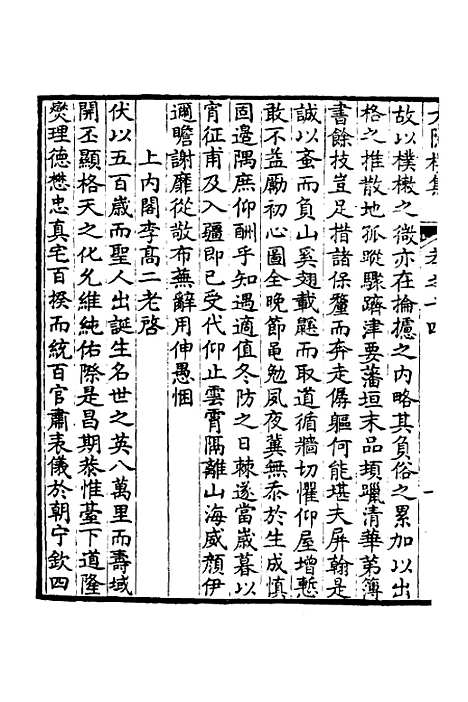 故以樸樕之微亦在掄攄之内略其負俗之累加以出
格之推散地孤蹤驟躋津要藩垣末品頻躐清華第簿
書餘技豈足措諸保釐而奔走孱軀何能堪夫屏翰是
誠以蚉而負山奚翅載鼷而取道循牆切懼仰屋增慙
敢不益勵初心圖全晚節黽勉夙夜冀無忝於生成慎
固邊隅庶仰酬乎知遇適值冬防之日棘遂當歲暮以
宵征甫及入疆即已受代仰止雲霄隔離山海威顏伊
邇瞻謝靡從敬布蕪辭用伸愚悃
上内閣李髙二老啓
伏以五百歲而聖人出誕生名世之英八萬里而壽域
開丕顯格天之化允維純佑際是昌期恭惟臺下道隆
爕理德懋忠真宅百揆而統百官肅表儀於朝宁欽四